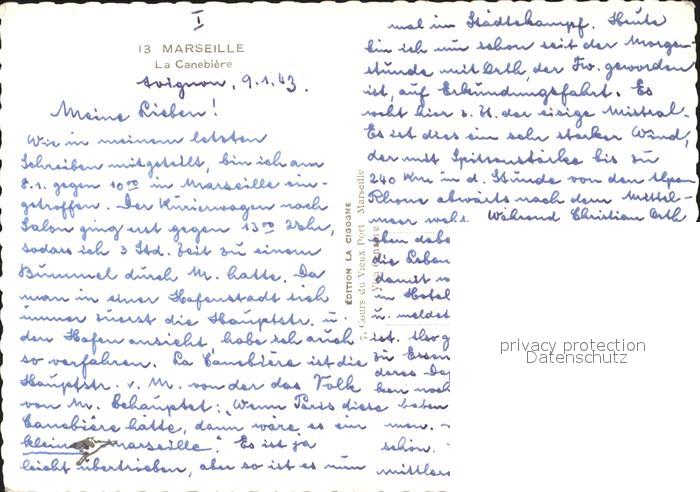 I
13 MARSEILLE
La Canebière
Avignon, 9.1.43.
Meine Lieben!
Wie in meinem letzten
Schreiben mitgeteilt, bin ich am
8.1. gegen 10⁰⁰ in Marseille ein-
getroffen. Der Kurierwagen nach
Salon ging erst gegen 13⁰⁰ Uhr,
sodass ich 3 Std. Zeit zu einem
Bummel durch M. hatte. Da
man in einer Hafenstadt sich
immer zuerst die Hauptstr. u.
den Hafen ansieht habe ich auch
so verfahren. La Canebière ist die
Hauptstr. v. M. von der das Volk
von M. behauptet: "Wenn Paris diese
Canebière hätte, dann wäre es ein
kleines Marseille." Es ist ja
leicht übertrieben, aber so ist es nun
ÉDITION LA CIGOGNE
7, Cours du Vieux Port Marseille
mal im Städtekampf. Heute
bin ich nun schon seit der Morgen-
stunde mit Orth, der Fw. geworden
ist, auf Erkundungsfahrt. Es
weht hier z. Zt. der eisige Mistral.
Es ist dies ein sehr starker Wind,
der mit Spitzenstärke bis zu
240 Km in d. Stunde von den Alpen
Rhone abwärts nach dem Mittel-
meer weht. Während Christian Orth
eben dabe
die Leben
damit v
im Hotel
u. meldet
ist. Also g
zu Essen
ben noch
haben
man.
schön.
mittlers
privacy protection
Datenschutz